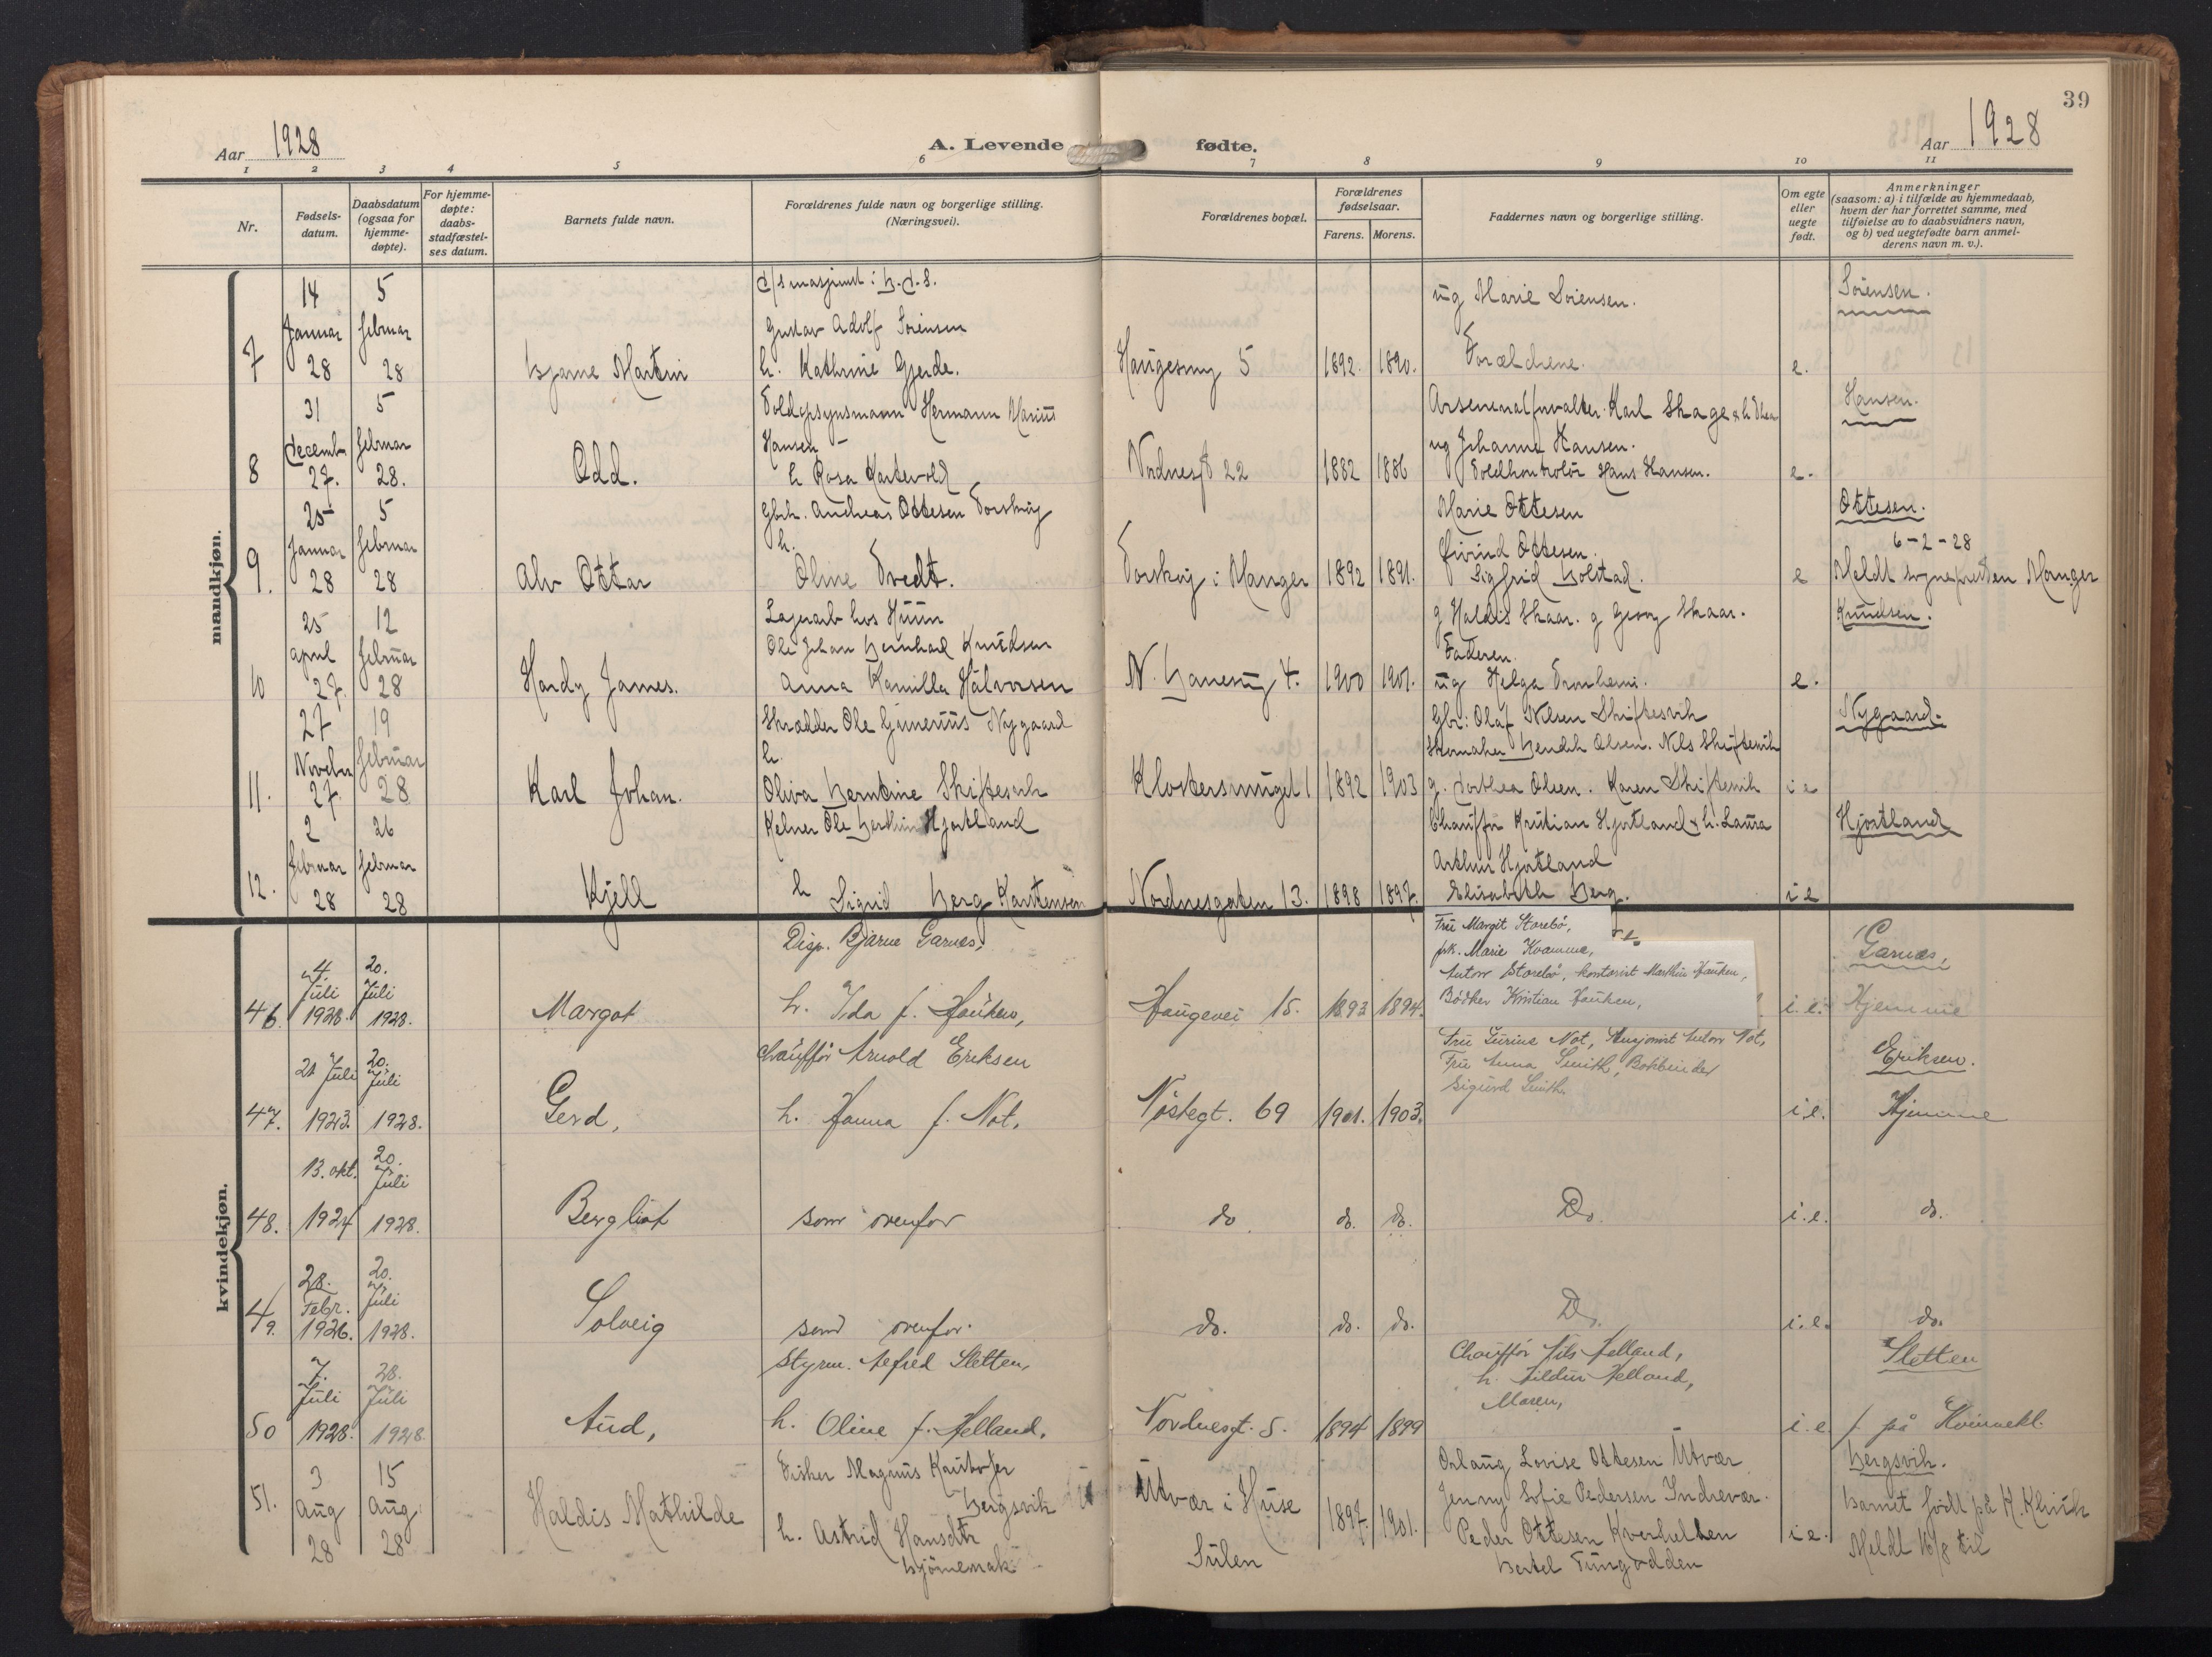 39
Aar 1928
A. Levende fødte.
Aar 1928
1 2 3 4 5 6 7 8 9 10 11
Nr.
Fødsels-
datum.
Daabsdatum
(ogsaa for
hjemme-
døpte).
For hjemme-
døpte:
daabs-
stadfæstel-
ses datum.
Barnets fulde navn.
Forældrenes fulde navn og borgerlige stilling.
(Næringsvei).
Forældrenes bopæl.
Forældrenes
fødselsaar.
Farens. Morens.
Faddernes navn og borgerlige stilling.
Om egte
eller
uegte
født.
Anmerkninger
(saasom: a) i tilfælde av hjemmedaab,
hvem der har forrettet samme, med
tilføielse av to daabsvidners navn,
og b) ved uegtefødte barn anmel-
derens navn m. v.).
mandkjøn.
7
14
Januar
28
5
februar
28
Bjarne Martin
d/s masjinist i B.d.S.
Gustav Adolf Sørensen
h. Kathrine Gjerde.
Haugesmug 5
1892. 1890.
ug Marie Sørensen.
Forældrene.
e.
Sørensen.
8
31
decembr
27.
5
februar
28.
Odd.
Toldopsynsmann Hermann Marius
Hansen
h Rosa
Nordnesgt 22
1882 1886
Karl Skage & h Thea
ug Johanne Hansen.
Toldkontrolør Hans Hansen.
e.
Hansen.
9.
25
Januar
28
5
februar
28
Alv Ottar
Gbr. Andreas Ottesen Torsvig
h.
Oline Tvedt.
Torsvig i Manger
1892 1891.
Marie Ottesen
Øivind Ottesen.
Sigfrid Bolstad.
e
Ottesen.
6-2-28
Meldt sognepresten Manger
10
25
april
27.
12
februar
28
Hardy James.
Lagerarb hos Huun
Ole Johan Bernhard Knudsen
Anna Kamilla Halvorsen
1900 1901.
g Haldis Skaar. g Georg Skaar.
Faderen.
ug Helga Tronheim.
e.
Knudsen.
11.
27
Novebr
27.
19
februar
28
Karl Johan.
Skrædder Ole Nygaard
h.
Oliva Berntine Skiftesvik
Klostersmuget 1
1892 1903
Gbr: Olaf Nilsen Skiftesvik
Skomaker Olsen. Nils Skiftesvik
g. Dorthea Olsen. Karen Skiftesvik
i e
Nygaard.
12.
2
februar
28
26
februar
28
Kjell
Kelner Ole Hjortland
h Sigrid Berg Karstensen
Nordnesgaten 13.
1898 1897.
Chauffør Kristian Hjortland & h. Laura
Arthur Hjortland
Elisabeth Berg.
i e
Hjortland
kvindekjøn.
46.
4.
Juli
1928.
20.
Juli
1928.
Margot
Disp. Bjarne Garnes,
h. Ida f. Hauken,
Haugevei 15.
1893 1894.
Fru Margit Storebø,
frk. Marie Kvamme,
Anton Storebø, kontorist Martin Hauken,
Bødker Kristian Hauken,
i. e.
Garnes,
Hjemme
47.
21 Juli
1923.
20.
Juli
1928.
Gerd,
Chauffør Arnold Eriksen
h. Hanna f. Not,
Nøstegt. 69
1901. 1903.
Fru Not, Anton Not,
Fru Anna Smith, Bokbinder
Sigurd Smith.
i e.
Eriksen.
Hjemme
48.
13. okt.
1924
20.
Juli
1928.
Bergliot
som ovenfor
do. do. do.
Do.
i. e.
do.
49.
28.
Febr.
1926.
20.
Juli
1928.
Solveig
som ovenfor
do. do. do.
Do.
i. e.
do.
50
7.
Juli
1928.
28.
Juli
1928.
Aud,
Styrm. Alfred Sletten,
h. Oline f. Helland,
Nordnesgt. 5.
1894 1899
Chauffør Nils Helland,
h. Hildur Helland,
Maren,
i. e.
Sletten
f. på Kvinnekl.
51.
3
Aug
28
15
Aug
28
Haldis Mathilde
Fisker Magnus Kristofer
Bergsvik
h. Astrid Hansdtr
Utvær i Huse
Sulen
1897. 1901.
Orlaug Lovise Ottesen Utvær
Jenny Sofie Pedersen Indrevær.
Peder Ottesen Kverhellen
Bertel Tungodden
i e.
Bergsvik.
Barnet født på K. Klinik
Meldt 16/8 til